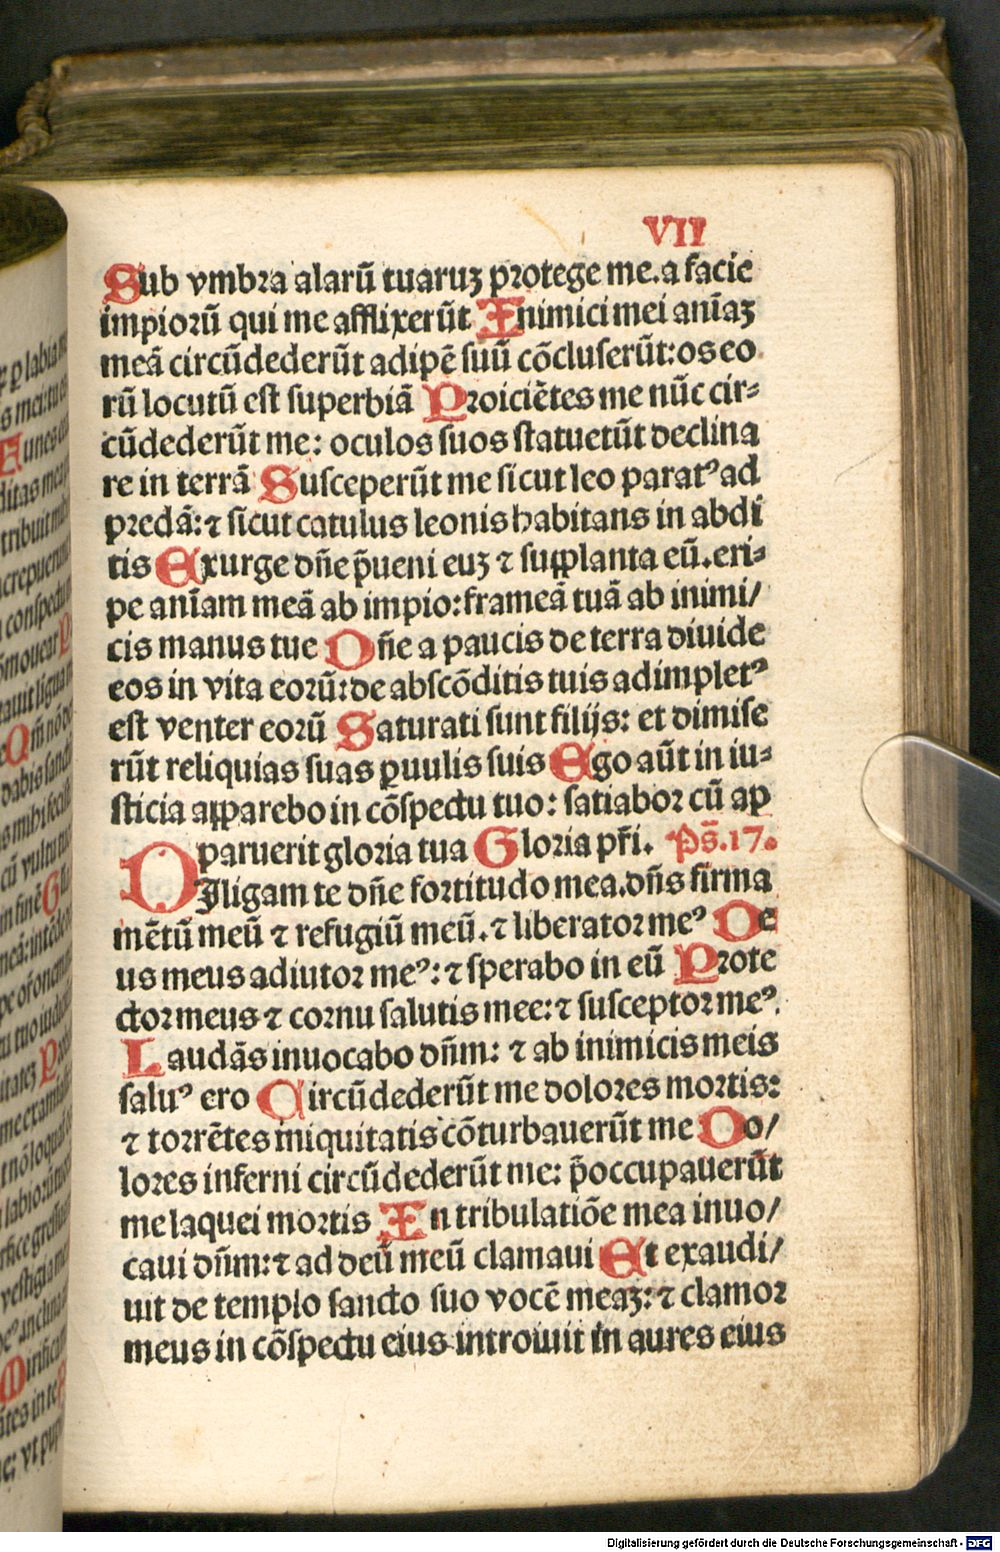 VII
Sub vmbra alarū tuaruʒ protege me. a facie
impiorū qui me afflixerūt Inimici mei aniāʒ
meā circūdederūt adipē suū cōcluserūt: os eo
rū locutū est superbiā Proiciētes me nūc cir-
cūdederūt me: oculos suos statuerūt declina
re in terrā Susceperūt me sicut leo paratꝰ ad
predā: ⁊ sicut catulus leonis habitans in abdi
tis Exurge dn̄e p̄ueni euʒ ⁊ supplanta eū. eri-
pe animam meā ab impio: frameā tuā ab inimi/
cis manus tue Dn̄e a paucis de terra diuide
eos in vita eorū: de abscōditis tuis adimpletꝰ
est venter eorū Saturati sunt filijs: et dimise
rūt reliquias suas ꝑuulis suis Ego aūt in iu-
sticia apparebo in cōspectu tuo: satiabor cū ap
paruerit gloria tua Gloria pr̄i. Ps̄. 17.
DIligam te dn̄e fortitudo mea. dn̄s firma
mētū meū ⁊ refugiū meū. ⁊ liberator meꝰ De
us meus adiutor meꝰ: ⁊ sperabo in eū Prote
ctor meus ⁊ cornu salutis mee: ⁊ susceptor meꝰ.
Laudās inuocabo dn̄m: ⁊ ab inimicis meis
saluꝰ ero Circūdederūt me dolores mortis:
⁊ torrētes iniquitatis cōturbauerūt me Do/
lores inferni circūdederūt me: p̄occupauerūt
me laquei mortis In tribulatiōe mea inuo/
caui dn̄m: ⁊ ad deū meū clamaui Et exaudi/
uit de templo sancto suo vocē meaʒ: ⁊ clamor
meus in cōspectu eius introiuit in aures eius
Digitalisierung gefördert durch die Deutsche Forschungsgemeinschaft - DFG